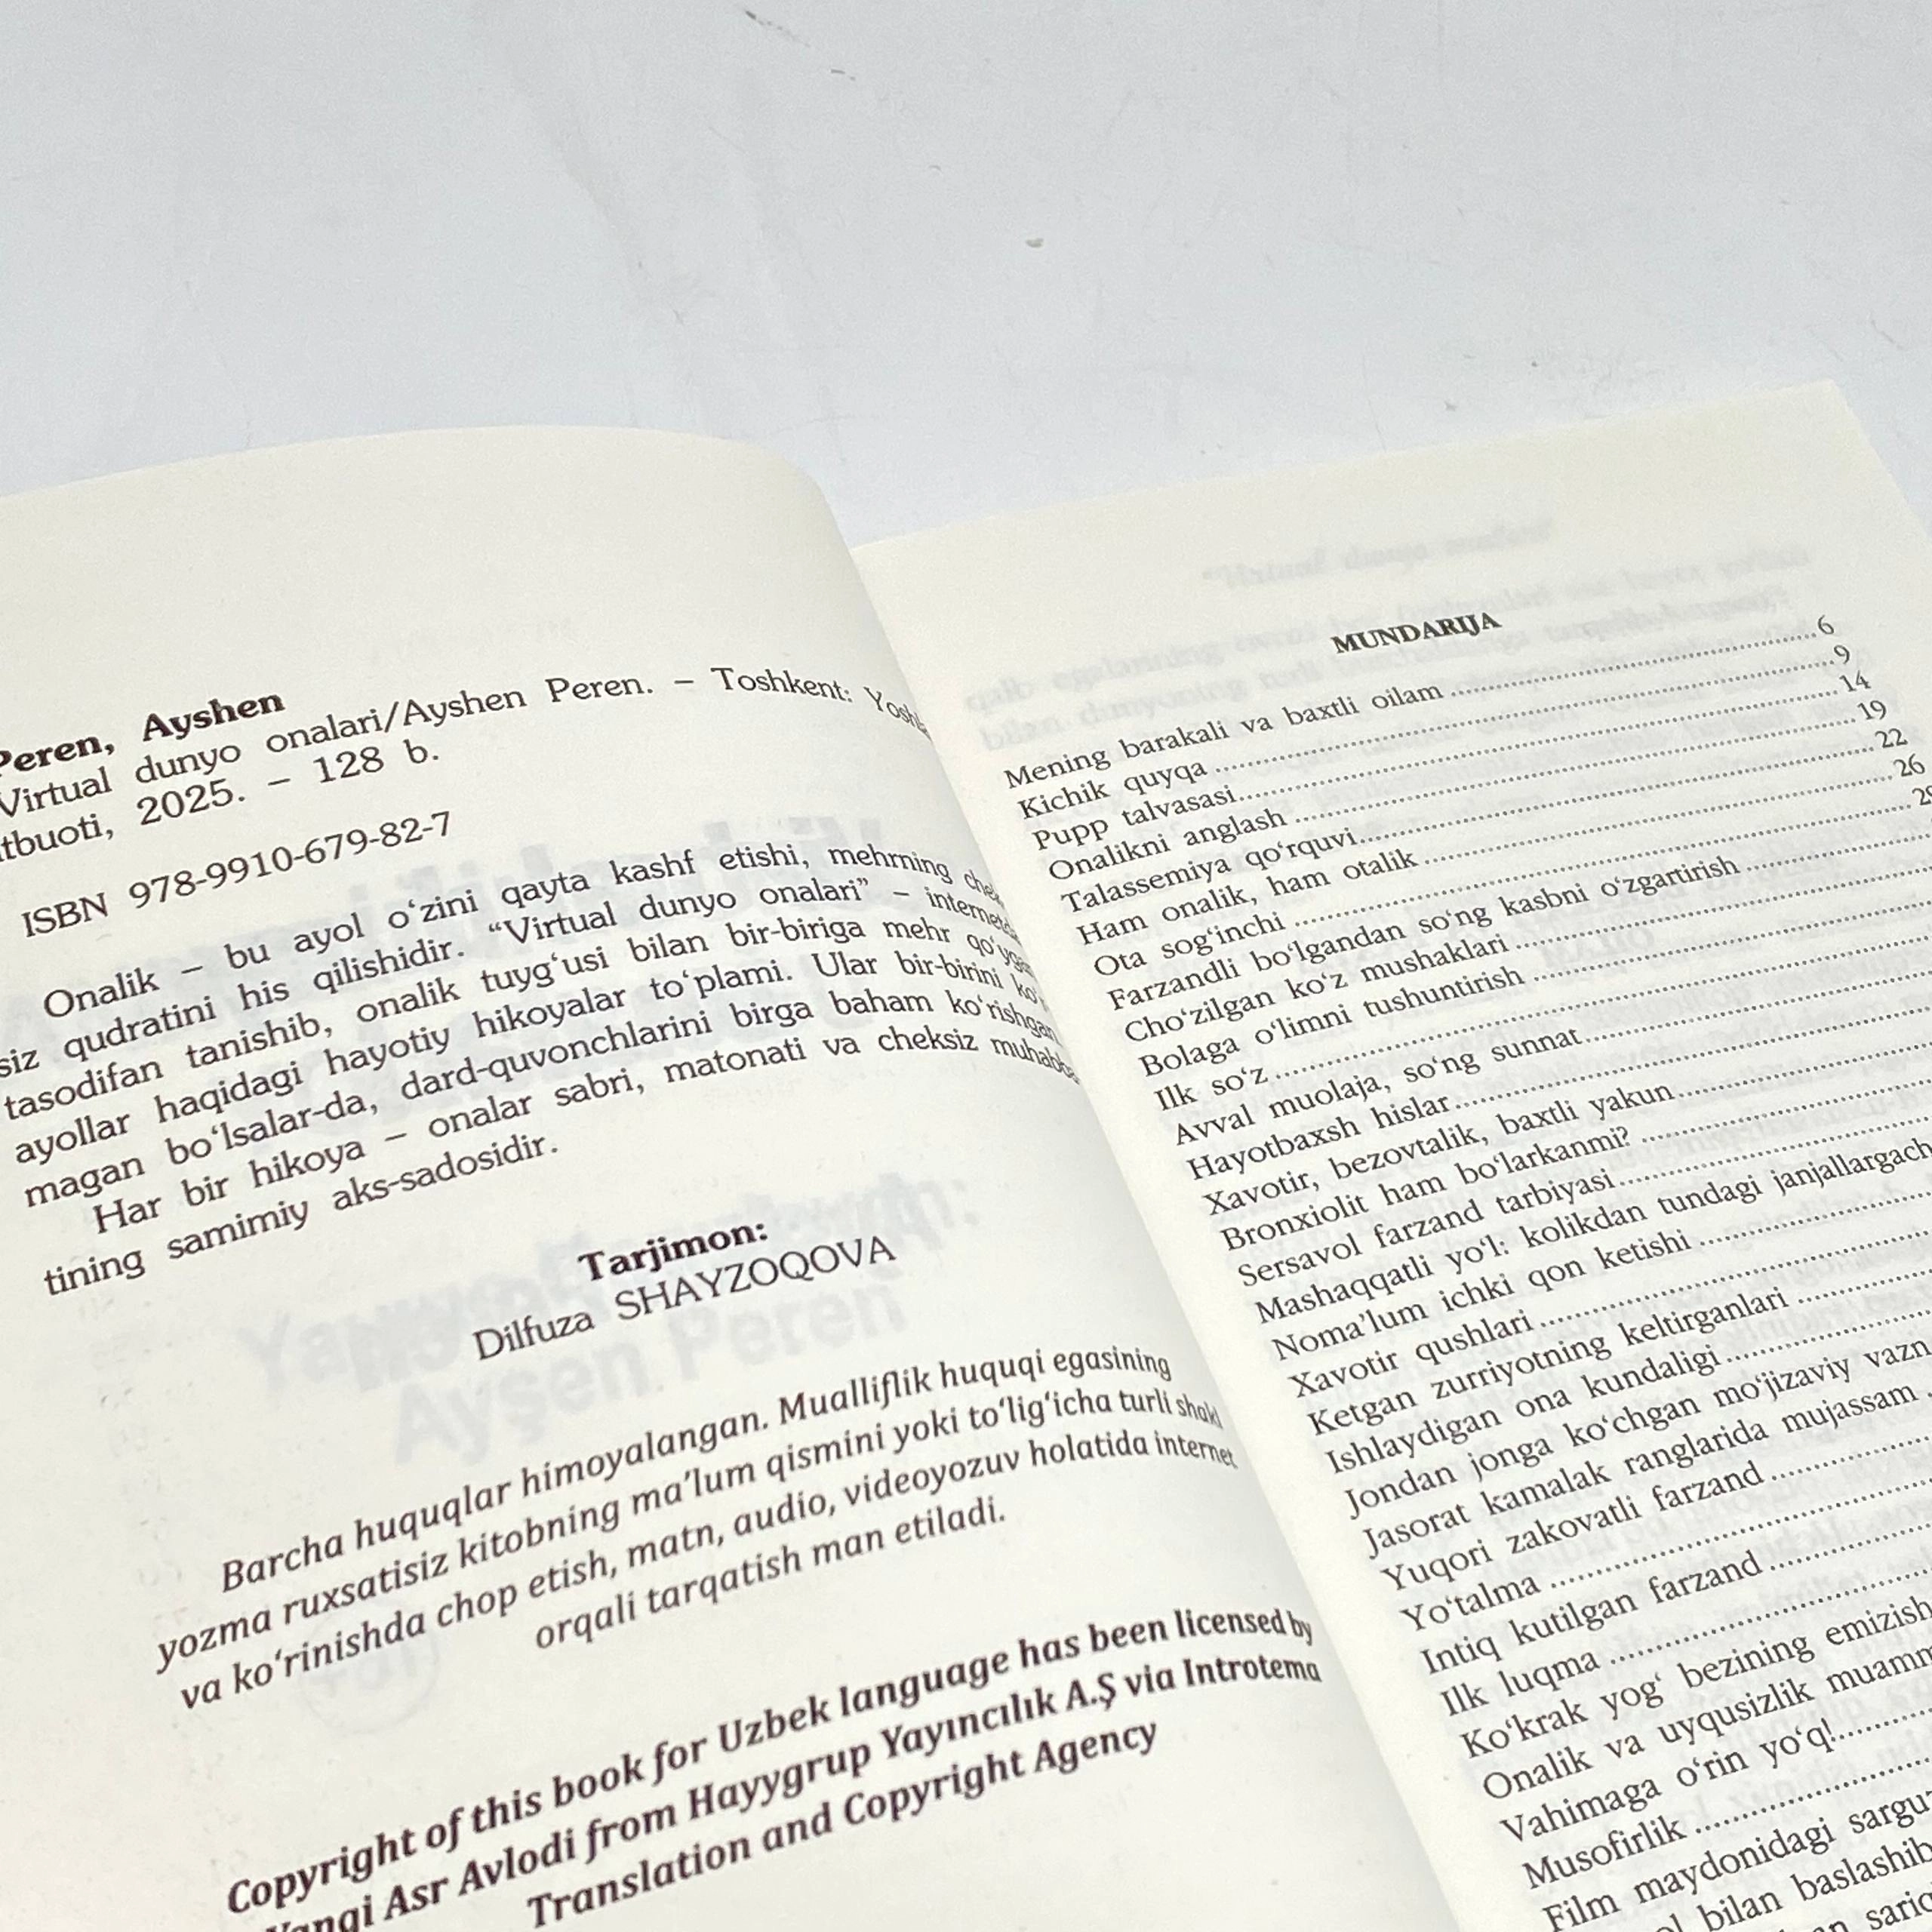 Peren, Ayshen
Virtual dunyo onalari/Ayshen Peren. – Toshkent:
2025. – 128 b.
ISBN 978-9910-679-82-7
Onalik – bu ayol o‘zini qayta kashf etishi, mehrning
siz qudratini his qilishidir. “Virtual dunyo onalari” –
tasodifan tanishib, onalik tuyg‘usi bilan bir-biriga mehr
ayollar haqidagi hayotiy hikoyalar to‘plami. Ular bir-birini
magan bo‘lsalar-da, dard-quvonchlarini birga baham ko‘rishgan.
Har bir hikoya – onalar sabri, matonati va cheksiz
tining samimiy aks-sadosidir.
Tarjimon:
Dilfuza SHAYZOQOVA
Barcha huquqlar himoyalangan. Mualliflik huquqi egasining
yozma ruxsatisiz kitobning ma’lum qismini yoki to‘lig‘icha turli shakl
va ko‘rinishda chop etish, matn, audio, videoyozuv holatida internet
orqali tarqatish man etiladi.
Copyright of this book for Uzbek language has been licensed by
Yangi Asr Avlodi from Hayygrup Yayıncılık A.Ş via Introtema
Translation and Copyright Agency
MUNDARIJA
Mening barakali va baxtli oilam ........ 6
Kichik quyqa ........ 9
Pupp talvasasi ........ 14
Onalikni anglash ........ 19
Talassemiya qo‘rquvi ........ 22
Ham onalik, ham otalik ........ 26
Ota sog‘inchi ........
Farzandli bo‘lgandan so‘ng kasbni o‘zgartirish ........
Cho‘zilgan ko‘z mushaklari ........
Bolaga o‘limni tushuntirish ........
Ilk so‘z ........
Avval muolaja, so‘ng sunnat ........
Hayotbaxsh hislar ........
Xavotir, bezovtalik, baxtli yakun ........
Bronxiolit ham bo‘larkanmi? ........
Sersavol farzand tarbiyasi ........
Mashaqqatli yo‘l: kolikdan tundagi
Noma’lum ichki qon ketishi ........
Xavotir qushlari ........
Ketgan zurriyotning keltirganlari ........
Ishlaydigan ona kundaligi ........
Jondan jonga ko‘chgan mo‘jizaviy vazn
Jasorat kamalak ranglarida mujassam
Yuqori zakovatli farzand ........
Yo‘talma ........
Intiq kutilgan farzand ........
Ilk luqma ........
Ko‘krak yog‘ bezining
Onalik va uyqusizlik
Vahimaga o‘rin yo‘q! ........
Musofirlik ........
Film maydonidagi
bilan